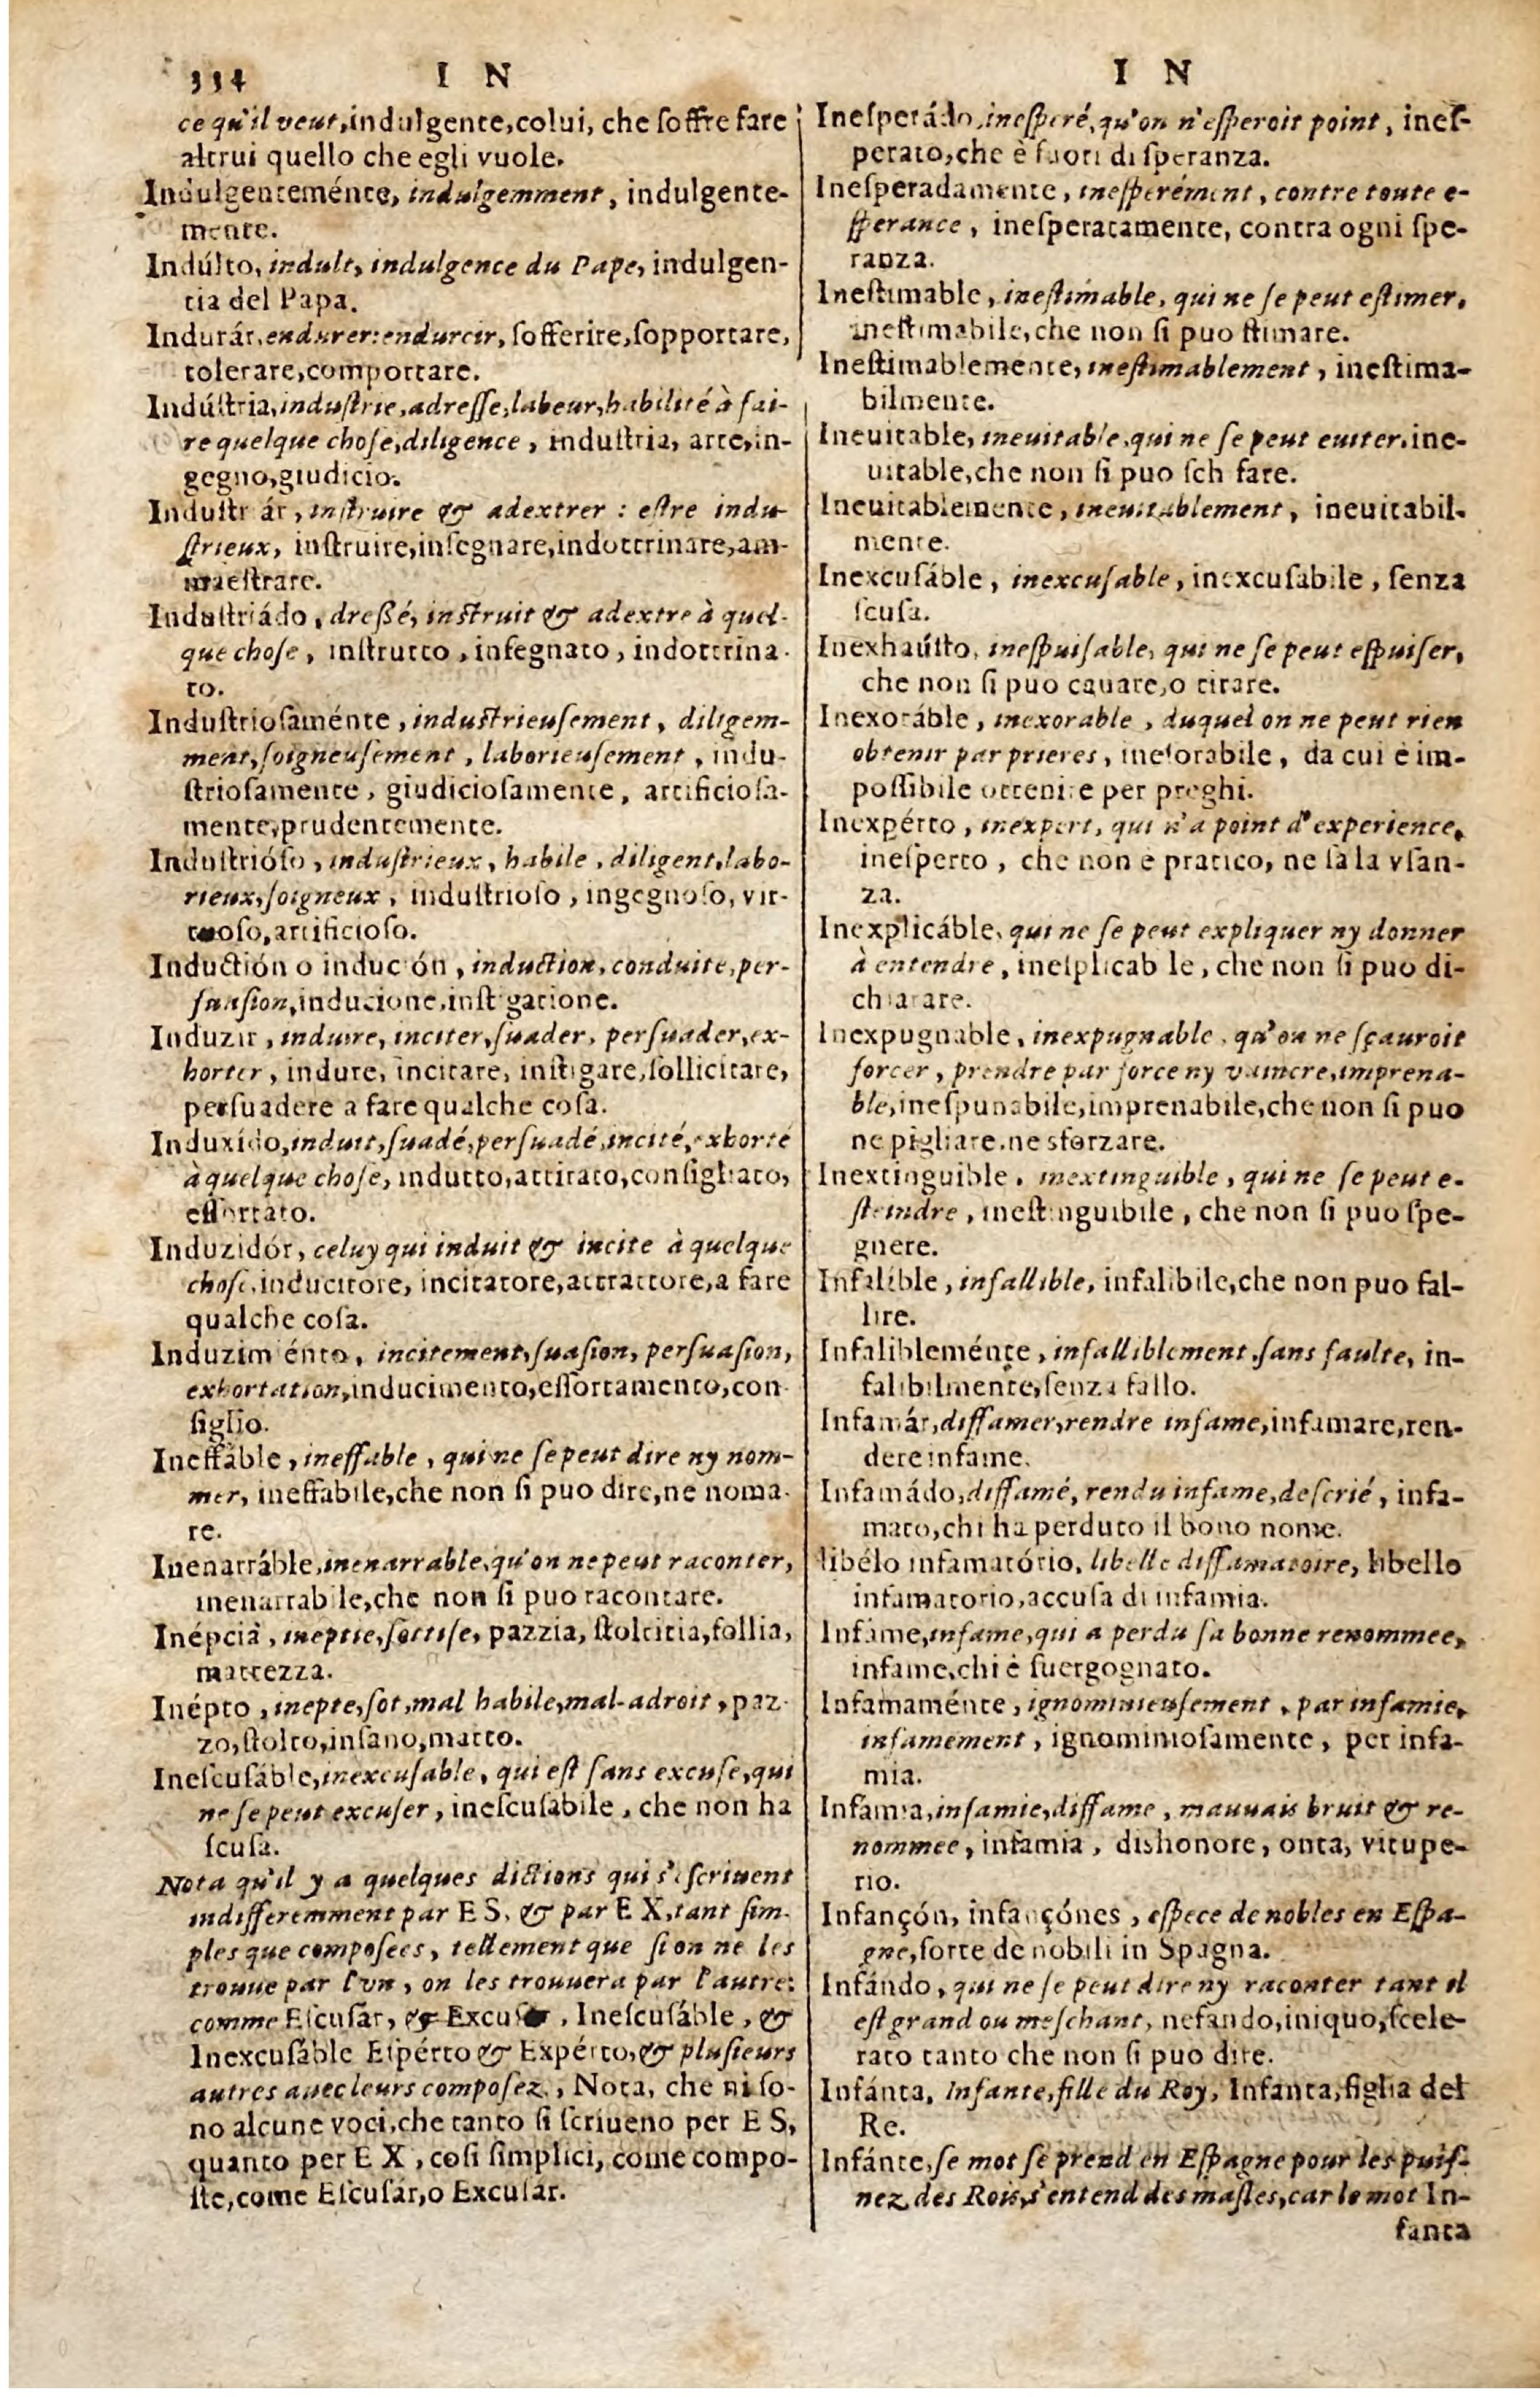 334 I N
ce qu'il veut, indulgente, colui, che ſoffre fare
altrui quello che egli vuole.
Indulgenteménte, indulgemment, indulgente-
mente.
Indúlto, indult, indulgence du Pape, indulgen-
tia del Papa.
Indurár, endurer: endurcir, ſofferire, ſopportare,
tolerare, comportare.
Indúſtria, induſtrie, adreſſe, labeur, habilité à fai-
re quelque choſe, diligence, induſtria, arte, in-
gegno, giudicio.
Induſtriár, inſtruire & adextrer : eſtre indu-
ſtrieux, inſtruire, inſegnare, indottrinare, am-
maeſtrare.
Induſtriádo, dreſſé, inſtruit & adextre à quel-
que choſe, inſtrutto, inſegnato, indottrina-
to.
Induſtrioſaménte, induſtrieuſement, diligem-
ment, ſoigneuſement, laborieuſement, indu-
ſtrioſamente, giudicioſamente, artificioſa-
mente, prudentemente.
Induſtrióſo, induſtrieux, habile, diligent, labo-
rieux, ſoigneux, induſtrioſo, ingegnoſo, vir-
tuoſo, artificioſo.
Inductión o indución, induction, conduite, per-
ſuaſion, inducione, inſtigatione.
Induzir, induire, inciter, ſuader, perſuader, ex-
horter, indure, incitare, inſtigare, ſollicitare,
perſuadere a fare qualche coſa.
Induxído, induit, ſuadé, perſuadé, incité, exhorté
à quelque choſe, indutto, attirato, conſigliato,
eſſortato.
Induzidór, celuy qui induit & incite à quelque
choſe, inducitore, incitatore, attrattore, a fare
qualche coſa.
Induzimiénto, incitement, ſuaſion, perſuaſion,
exhortation, inducimento, eſſortamento, con-
ſiglio.
Ineffáble, ineffable, qui ne ſe peut dire ny nom-
mer, ineffabile, che non ſi puo dire, ne noma-
re.
Inenarráble, inenarrable, qu'on ne peut raconter,
inenarrabile, che non ſi puo racontare.
Inépcia, ineptie, ſottiſe, pazzia, ſtoltitia, follia,
mattezza.
Inépto, inepte, ſot, mal habile, mal-adroit, paz-
zo, ſtolto, inſano, matto.
Ineſcuſáble, inexcuſable, qui eſt ſans excuſe, qui
ne ſe peut excuſer, ineſcuſabile, che non ha
ſcuſa.
Nota qu'il y a quelques dictions qui s'eſcriuent
indifferemment par E S, & par E X, tant ſim-
ples que compoſees, tellement que ſi on ne les
trouue par l'vn, on les trouuera par l'autre:
comme Eſcuſar, & Excuſar, Ineſcuſáble, &
Inexcuſáble Eſpérto & Expérto, & pluſieurs
autres auec leurs compoſez, Nota, che ni ſo-
no alcune voci, che tanto ſi ſcriueno per E S,
quanto per E X, coſi ſimplici, come compo-
ſte, come Eſcuſár, o Excuſar.
I N
Ineſperádo, ineſperé, qu'on n'eſperoit point, ineſ-
perato, che è fuori di ſperanza.
Ineſperadamente, ineſperément, contre toute e-
ſperance, ineſperatamente, contra ogni ſpe-
ranza.
Ineſtimable, ineſtimable, qui ne ſe peut eſtimer,
ineſtimabile, che non ſi puo ſtimare.
Ineſtimablemente, ineſtimablement, ineſtima-
bilmente.
Ineuitable, ineuitable, qui ne ſe peut euiter, ine-
uitable, che non ſi puo ſchifare.
Ineuitablemente, ineuitablement, ineuitabil-
mente.
Inexcuſáble, inexcuſable, inexcuſabile, ſenza
ſcuſa.
Inexhaúſto, ineſpuiſable, qui ne ſe peut eſpuiſer,
che non ſi puo cauare, o tirare.
Inexoráble, inexorable, duquel on ne peut rien
obtenir par prieres, ineſorabile, da cui è im-
poſſibile ottenire per preghi.
Inexpérto, inexpert, qui n'a point d'experience,
ineſperto, che non è pratico, ne ſà la vſan-
za.
Inexplicáble, qui ne ſe peut expliquer ny donner
à entendre, ineſplicabile, che non ſi puo di-
chiarare.
Inexpugnable, inexpugnable, qu'on ne ſçauroit
forcer, prendre par force ny vaincre, imprena-
ble, ineſpunabile, imprenabile, che non ſi puo
ne pigliare, ne sforzare.
Inextinguible, inextinguible, qui ne ſe peut e-
ſteindre, ineſtinguibile, che non ſi puo ſpe-
gnere.
Infalible, infallible, infalibile, che non puo fal-
lire.
Infalibleménte, infalliblement, ſans faulte, in-
falibilmente, ſenza fallo.
Infamár, diffamer, rendre infame, infamare, ren-
dere infame.
Infamádo, diffamé, rendu infame, deſcrié, infa-
mato, chi ha perduto il bono nome.
libélo infamatório, libelle diffamatoire, libello
infamatorio, accuſa di infamia.
Infáme, infame, qui a perdu ſa bonne renommee,
infame, chi è ſuergognato.
Infamaménte, ignominieuſement, par infamie,
infamement, ignominioſamente, per infa-
mia.
Infamia, infamie, diffame, mauuais bruit & re-
nommee, infamia, dishonore, onta, vitupe-
rio.
Infançón, infançónes, eſpece de nobles en Eſpa-
gne, ſorte de nobili in Spagna.
Infándo, qui ne ſe peut dire ny raconter tant il
eſt grand ou meſchant, nefando, iniquo, ſcele-
rato tanto che non ſi puo dire.
Infánta, Infante, fille du Roy, Infanta, figlia del
Re.
Infánte, ſe mot ſe prend en Eſpagne pour les puiſ-
nez des Rois, s'entend des maſles, car le mot In-
fanta